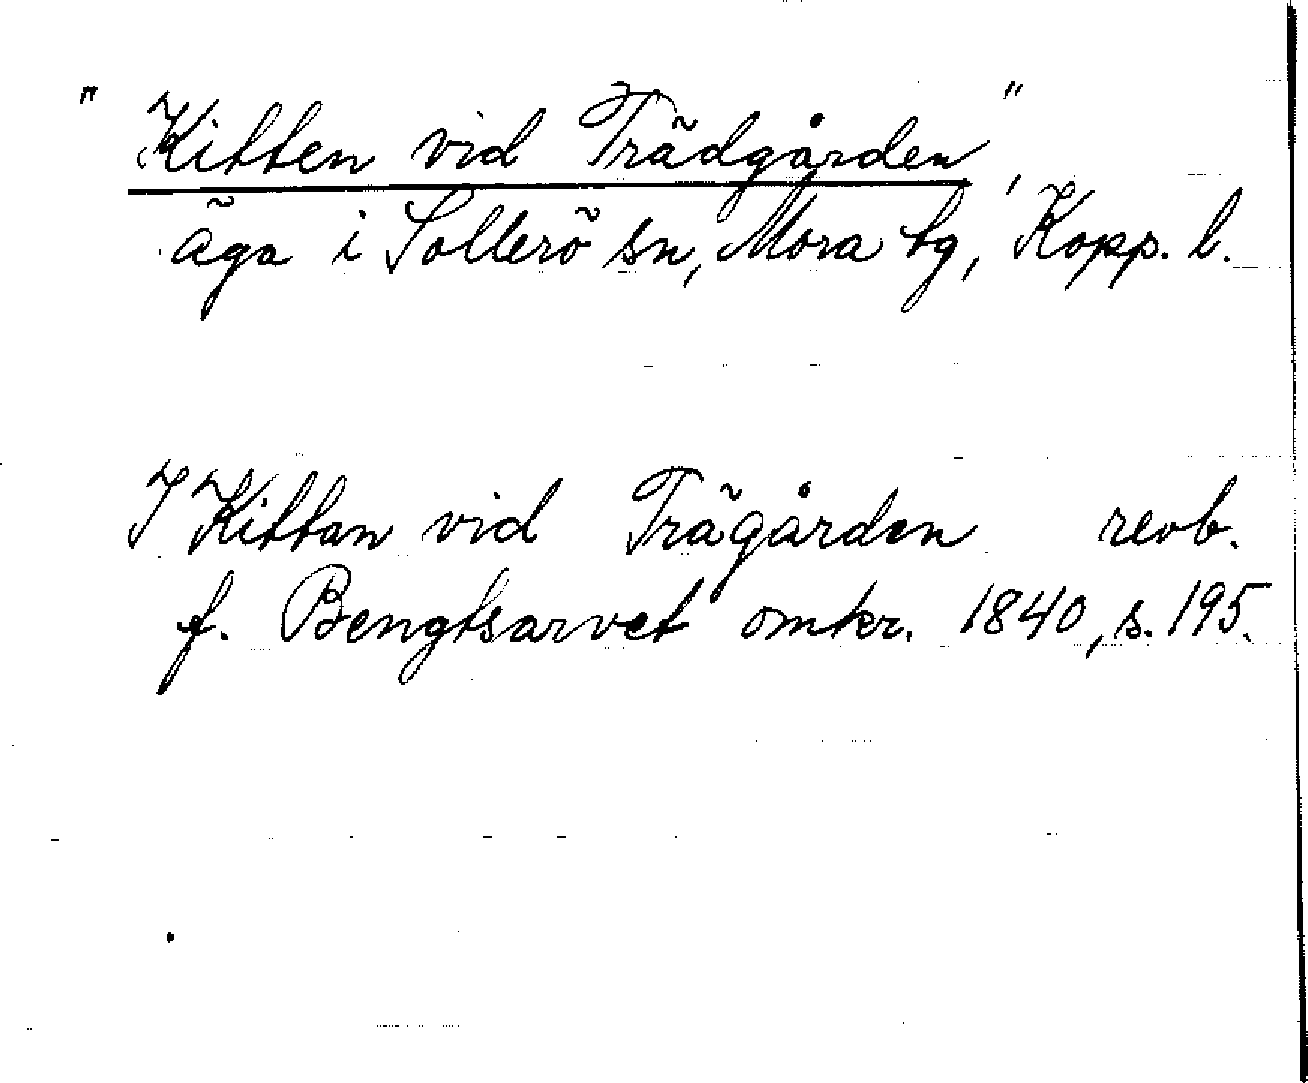 "Kitten vid Trädgården",
äga i Sollerö sn, Mora tg, Kopp. l.
I Kittan vid Trägården revb.
f. Bengtsarvet omkr. 1840, s. 195.